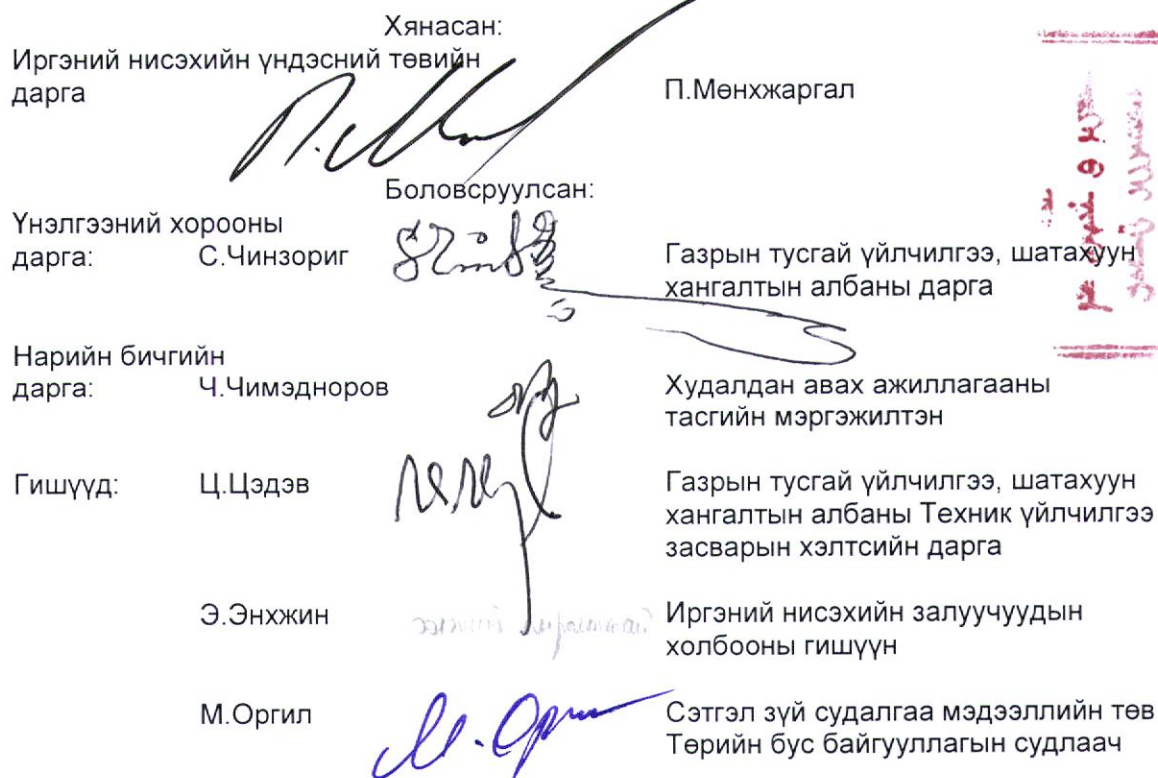 Хянасан:
Иргэний нисэхийн үндэсний төвийн
дарга П.Мөнхжаргал
Боловсруулсан:
Үнэлгээний хорооны
дарга: С.Чинзориг Газрын тусгай үйлчилгээ, шатахуун
хангалтын албаны дарга
Нарийн бичгийн
дарга: Ч.Чимэдноров Худалдан авах ажиллагааны
тасгийн мэргэжилтэн
Гишүүд: Ц.Цэдэв Газрын тусгай үйлчилгээ, шатахуун
хангалтын албаны Техник үйлчилгээ
засварын хэлтсийн дарга
Э.Энхжин Иргэний нисэхийн залуучуудын
холбооны гишүүн
М.Оргил Сэтгэл зүй судалгаа мэдээллийн төв
Төрийн бус байгууллагын судлаач